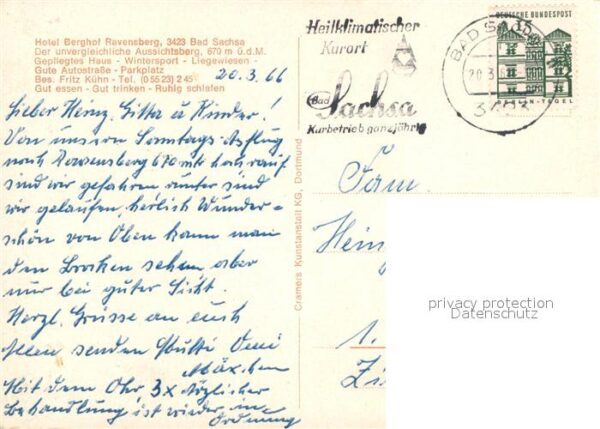 Hotel Berghof Ravensberg, 3423 Bad Sachsa
Der unvergleichliche Aussichtsberg, 670 m ü.d.M.
Gepflegtes Haus - Wintersport - Liegewiesen -
Gute Autostraße - Parkplatz
Bes. Fritz Kühn - Tel. (0 55 23) 2 45
Gut essen - Gut trinken - Ruhig schlafen
20.3.66
Lieber Heinz, Gitta u Kinder!
Von unsern Sonntags-Asflug
nach Ravensberg 670 mtr hoch rauf
sind wir gefahren runter sind
wir gelaufen, herlich Wunder=
schön von Oben kann man
den Brocken sehen aber
nur bei guter Sicht.
Herzl. Grüsse an euch
Allen senden Mutti Omi
Mäxchen
Mit dem Ohr, 3x täglicher
behandlung ist wieder in
Ordnung
Cramers Kunstanstalt KG, Dortmund
Heilklimatischer
Kurort
Bad
Sachsa
Kurbetrieb ganzjährig
BAD SACHSA
20.3.
3423
DEUTSCHE BUNDESPOST
BERLIN-TEGEL
Fam
Hein
1.
Zi
privacy protection
Datenschutz